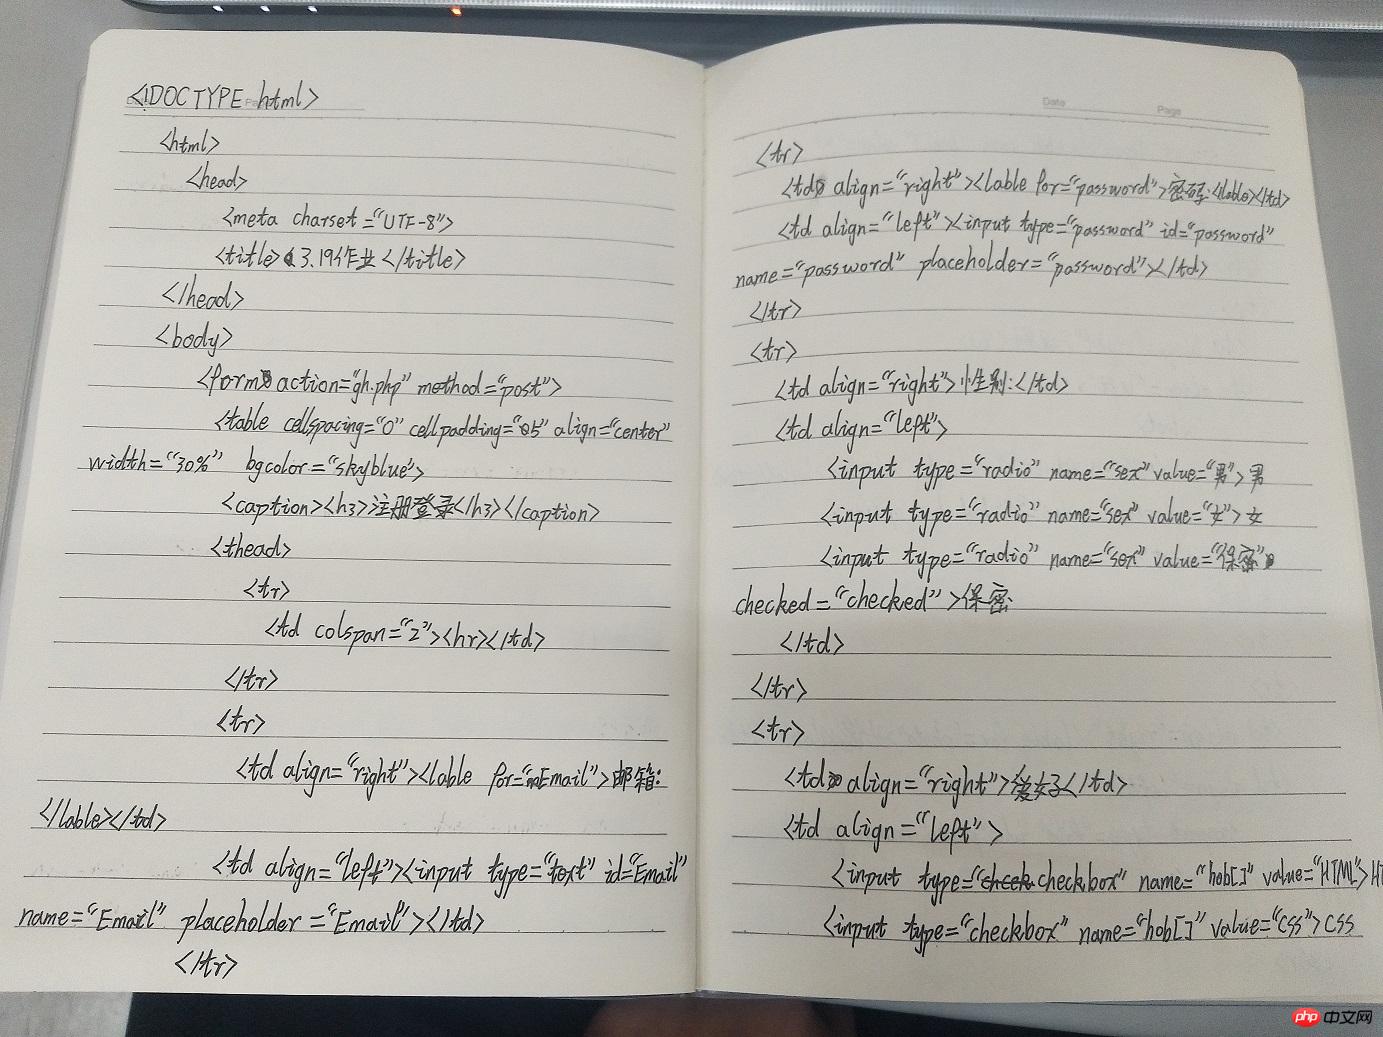 <!DOCTYPE html>
<html>
<head>
<meta charset="UTF-8">
<title>3.19作业</title>
</head>
<body>
<form action="gh.php" method="post">
<table cellspacing="0" cellpadding="5" align="center"
width="30%" bgcolor="skyblue">
<caption><h3>注册登录</h3></caption>
<thead>
<tr>
<td colspan="2"><hr></td>
</tr>
<tr>
<td align="right"><lable for="Email">邮箱:
</lable></td>
<td align="left"><input type="text" id="Email"
name="Email" placeholder="Email"></td>
</tr>
Date Page
<tr>
<td align="right"><lable for="password">密码:<lable></td>
<td align="left"><input type="password" id="password"
name="password" placeholder="password"></td>
</tr>
<tr>
<td align="right">性别:</td>
<td align="left">
<input type="radio" name="sex" value="男">男
<input type="radio" name="sex" value="女">女
<input type="radio" name="sex" value="保密"
checked="checked">保密
</td>
</tr>
<tr>
<td align="right">爱好</td>
<td align="left">
<input type="checkbox" name="hob[]" value="HTML">HT
<input type="checkbox" name="hob[]" value="CSS">CSS
php 中文网